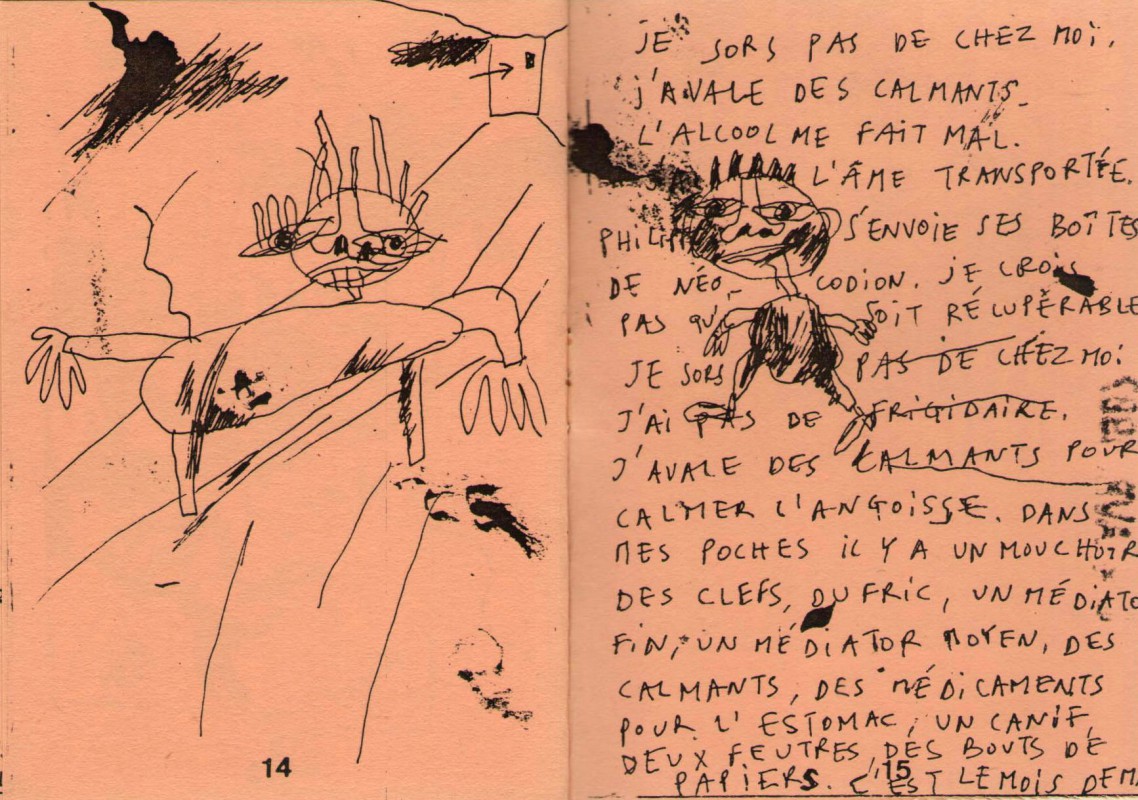 14
JE SORS PAS DE CHEZ MOI.
J'AVALE DES CALMANTS.
L'ALCOOL ME FAIT MAL.
L'ÂME TRANSPORTÉE.
S'ENVOIE SES BOÎTES
DE NÉO-CODION. JE CROIS
PAS QU' SOIT RÉCUPÉRABLE
JE SORS PAS DE CHEZ MOI
J'AI PAS DE FRIGIDAIRE.
J'AVALE DES CALMANTS POUR
CALMER L'ANGOISSE. DANS
MES POCHES IL Y A UN MOUCHOIR
DES CLEFS, DU FRIC, UN MÉDIATO
FIN, UN MÉDIATOR MOYEN, DES
CALMANTS, DES MÉDICAMENTS
POUR L'ESTOMAC, UN CANIF,
DEUX FEUTRES, DES BOUTS DE
PAPIERS. C'EST LE MOIS DE MA
15